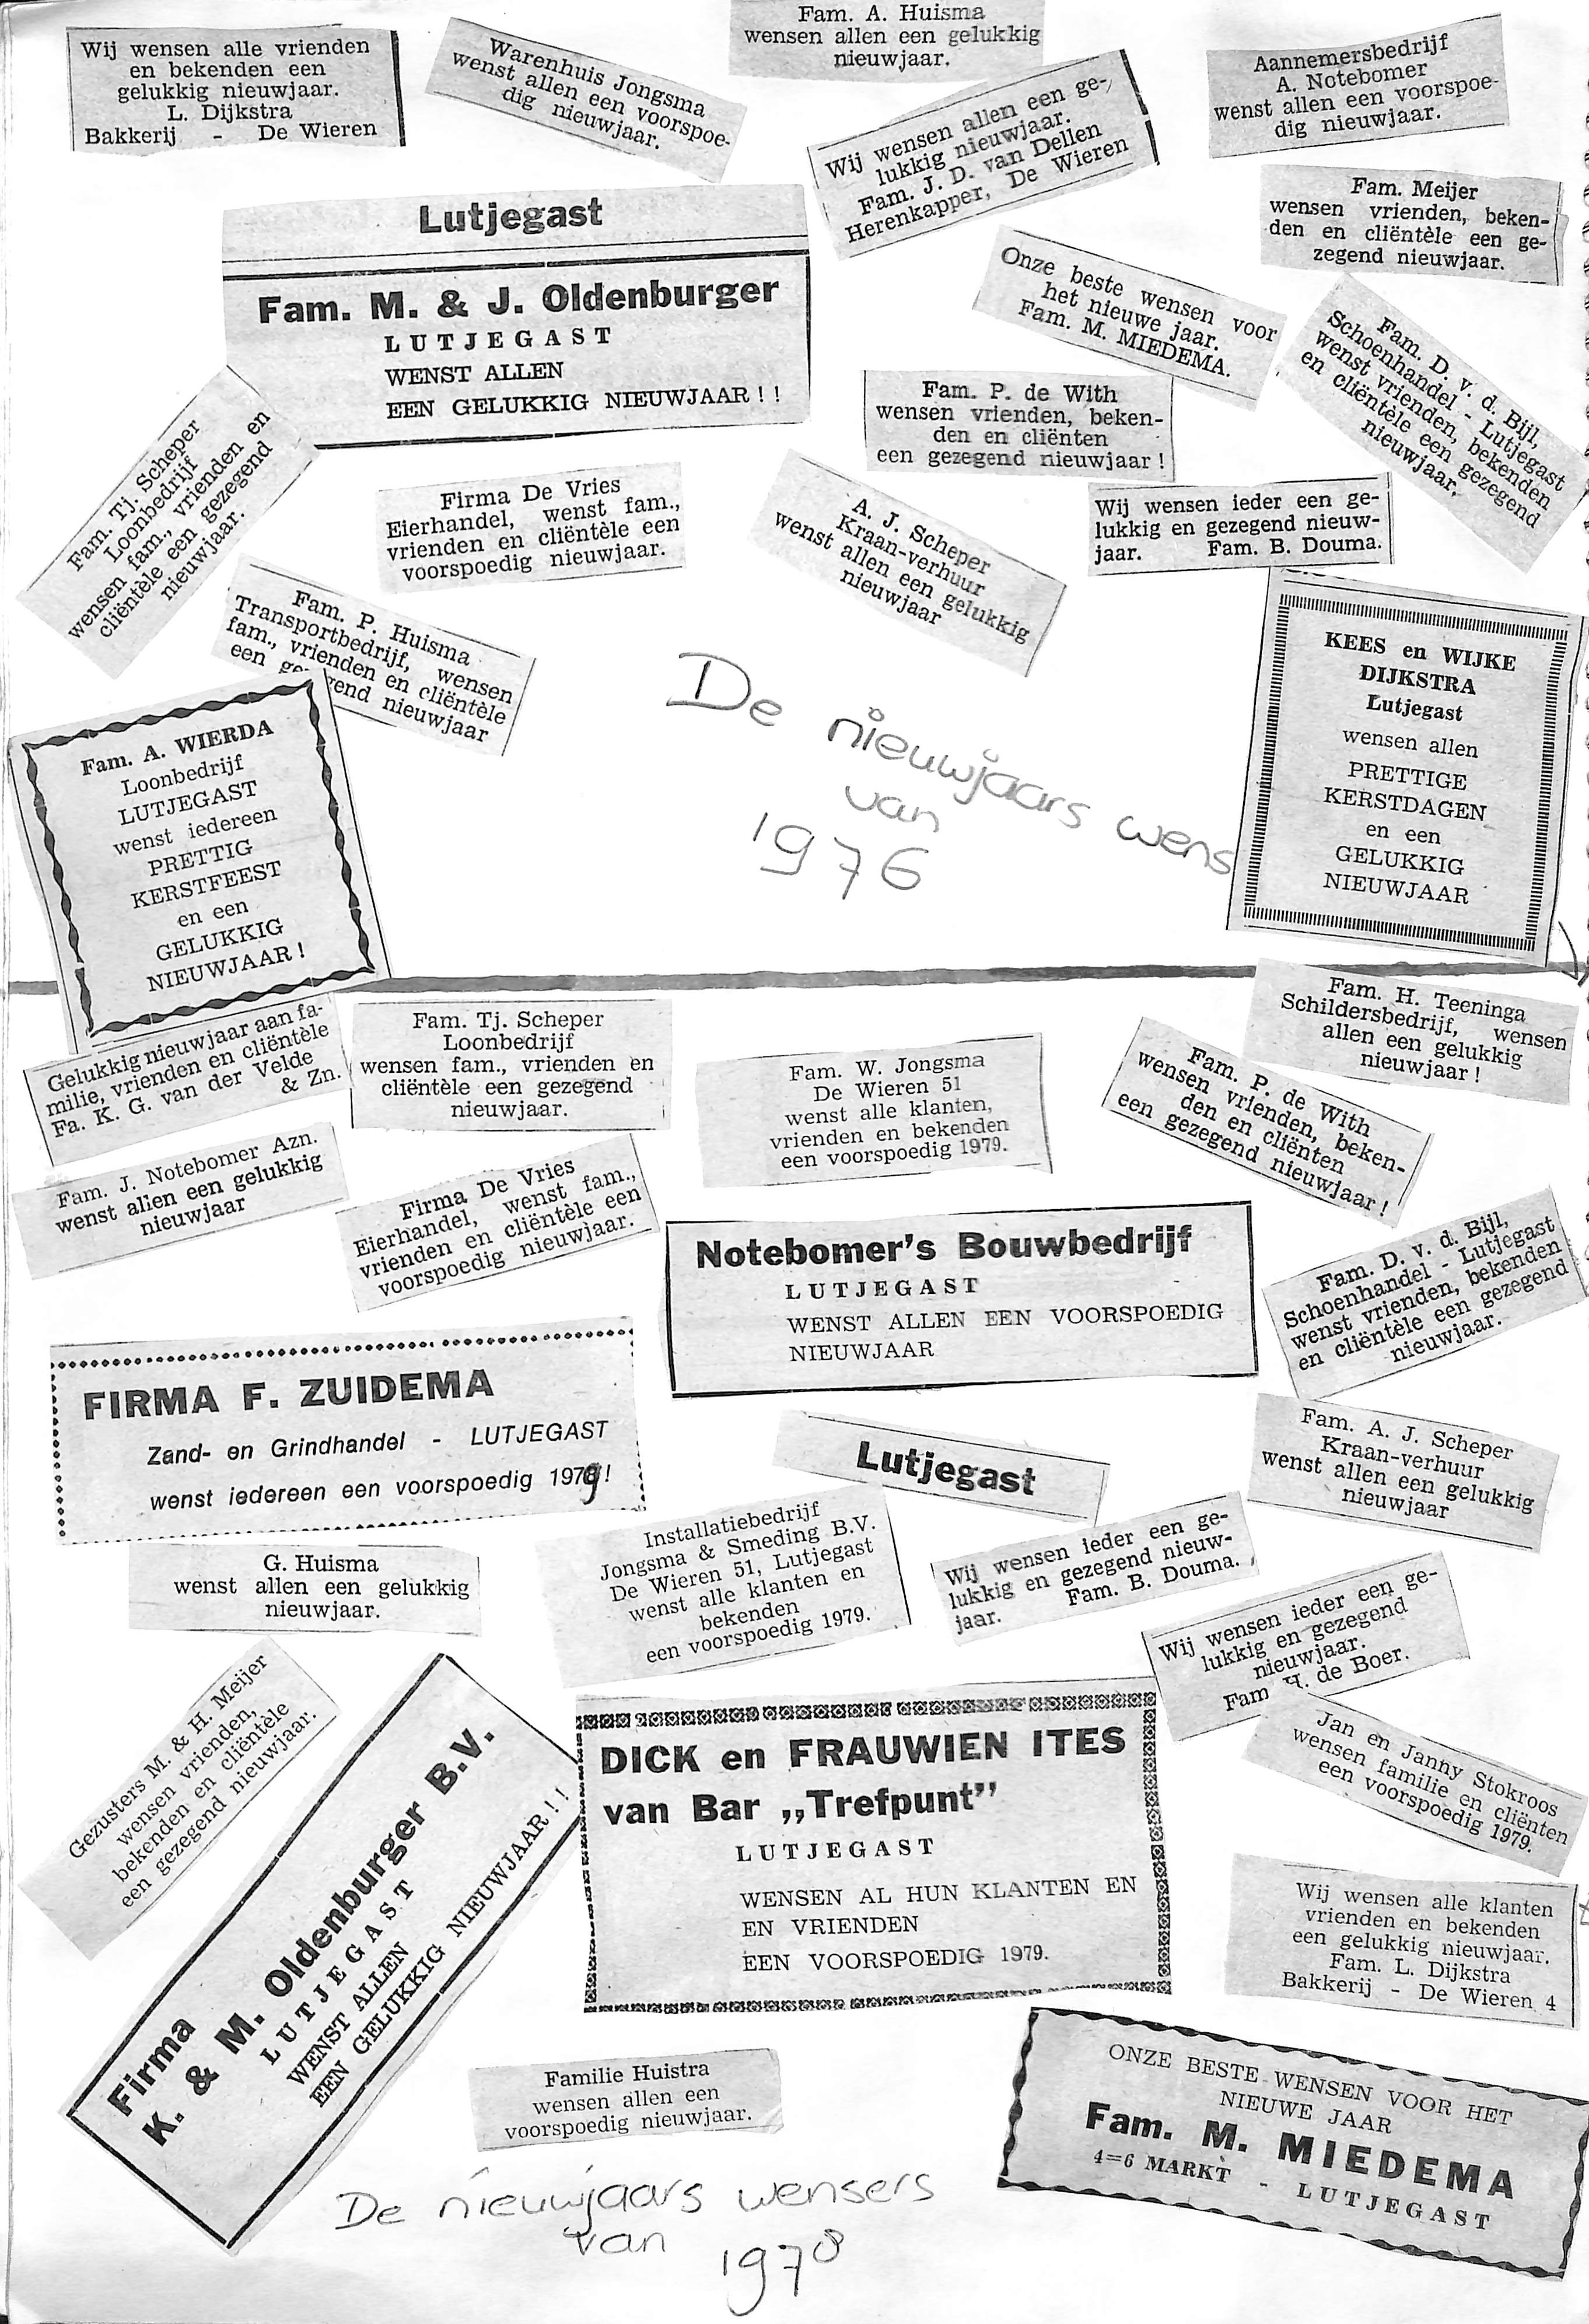 Wij wensen alle vrienden
en bekenden een
gelukkig nieuwjaar.
L. Dijkstra
Bakkerij - De Wieren
Warenhuis Jongsma
wenst allen een voorspoe-
dig nieuwjaar.
Fam. A. Huisma
wensen allen een gelukkig
nieuwjaar.
Wij wensen allen een ge-
lukkig nieuwjaar.
Fam. J. D. van Dellen
Herenkapper, De Wieren
Aannemersbedrijf
A. Notebomer
wenst allen een voorspoe-
dig nieuwjaar.
Fam. Meijer
wensen vrienden, beken-
den en cliëntèle een ge-
zegend nieuwjaar.
Lutjegast
Fam. M. & J. Oldenburger
LUTJEGAST
WENST ALLEN
EEN GELUKKIG NIEUWJAAR ! !
Onze beste wensen voor
het nieuwe jaar.
Fam. M. MIEDEMA.
Fam. D. v. d. Bijl,
Schoenhandel - Lutjegast
wenst vrienden, bekenden
en cliëntèle een gezegend
nieuwjaar.
Fam. P. de With
wensen vrienden, beken-
den en cliënten
een gezegend nieuwjaar !
Fam. Tj. Scheper
Loonbedrijf
wensen fam., vrienden en
cliëntèle een gezegend
nieuwjaar.
Firma De Vries
Eierhandel, wenst fam.,
vrienden en cliëntèle een
voorspoedig nieuwjaar.
A. J. Scheper
Kraan-verhuur
wenst allen een gelukkig
nieuwjaar
Wij wensen ieder een ge-
lukkig en gezegend nieuw-
jaar. Fam. B. Douma.
Fam. P. Huisma
Transportbedrijf, wensen
fam., vrienden en cliëntèle
een ge gend nieuwjaar
KEES en WIJKE
DIJKSTRA
Lutjegast
wensen allen
PRETTIGE
KERSTDAGEN
en een
GELUKKIG
NIEUWJAAR
Fam. A. WIERDA
Loonbedrijf
LUTJEGAST
wenst iedereen
PRETTIG
KERSTFEEST
en een
GELUKKIG
NIEUWJAAR !
De nieuwjaars wens
van
1976
Gelukkig nieuwjaar aan fa-
milie, vrienden en cliëntèle
Fa. K. G. van der Velde
& Zn.
Fam. Tj. Scheper
Loonbedrijf
wensen fam., vrienden en
cliëntèle een gezegend
nieuwjaar.
Fam. W. Jongsma
De Wieren 51
wenst alle klanten,
vrienden en bekenden
een voorspoedig 1979.
Fam. P. de With
wensen vrienden, beken-
den en cliënten
een gezegend nieuwjaar !
Fam. H. Teeninga
Schildersbedrijf, wensen
allen een gelukkig
nieuwjaar !
Fam. J. Notebomer Azn.
wenst allen een gelukkig
nieuwjaar
Firma De Vries
Eierhandel, wenst fam.,
vrienden en cliëntèle een
voorspoedig nieuwjaar.
Notebomer's Bouwbedrijf
LUTJEGAST
WENST ALLEN EEN VOORSPOEDIG
NIEUWJAAR
Fam. D. v. d. Bijl,
Schoenhandel - Lutjegast
wenst vrienden, bekenden
en cliëntèle een gezegend
nieuwjaar.
FIRMA F. ZUIDEMA
Zand- en Grindhandel - LUTJEGAST
wenst iedereen een voorspoedig 1979!
Lutjegast
Fam. A. J. Scheper
Kraan-verhuur
wenst allen een gelukkig
nieuwjaar
G. Huisma
wenst allen een gelukkig
nieuwjaar.
Installatiebedrijf
Jongsma & Smeding B.V.
De Wieren 51, Lutjegast
wenst alle klanten en
bekenden
een voorspoedig 1979.
Wij wensen ieder een ge-
lukkig en gezegend nieuw-
jaar. Fam. B. Douma.
Wij wensen ieder een ge-
lukkig en gezegend
nieuwjaar.
Fam H. de Boer.
Gezusters M. & H. Meijer
wensen vrienden,
bekenden en cliëntèle
een gezegend nieuwjaar.
Firma
K. & M. Oldenburger B.V.
LUTJEGAST
WENST ALLEN
EEN GELUKKIG NIEUWJAAR ! !
DICK en FRAUWIEN ITES
van Bar „Trefpunt”
LUTJEGAST
WENSEN AL HUN KLANTEN EN
EN VRIENDEN
EEN VOORSPOEDIG 1979.
Jan en Janny Stokroos
wensen familie en cliënten
een voorspoedig 1979.
Wij wensen alle klanten
vrienden en bekenden
een gelukkig nieuwjaar.
Fam. L. Dijkstra
Bakkerij - De Wieren 4
Familie Huistra
wensen allen een
voorspoedig nieuwjaar.
ONZE BESTE WENSEN VOOR HET
NIEUWE JAAR
Fam. M. MIEDEMA
4=6 MARKT - LUTJEGAST
De nieuwjaars wensers
van
1978